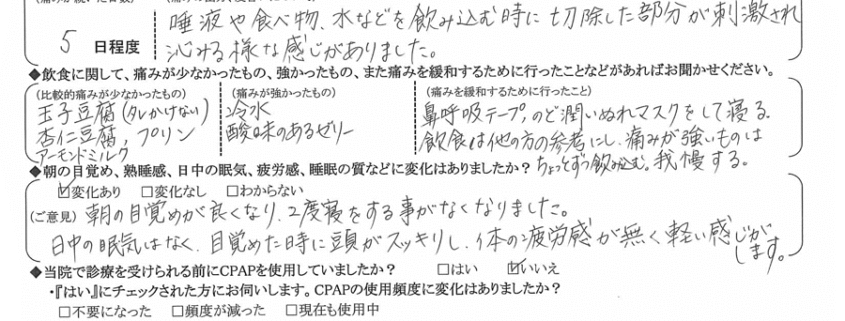 5 日程度
唾液や食べ物、水などを飲み込む時に切除した部分が刺激され
沁みる様な感じがありました。
◆飲食に関して、痛みが少なかったもの、強かったもの、また痛みを緩和するために行ったことなどがあればお聞かせください。
(比較的痛みが少なかったもの)
玉子豆腐(タレかけない)
杏仁豆腐、プリン
アーモンドミルク
(痛みが強かったもの)
冷水
酸味のあるゼリー
(痛みを緩和するために行ったこと)
鼻呼吸テープ、のど潤いぬれマスクをして寝る。
飲食は他の方の参考にし、痛みが強いものは
ちょっとずつ飲み込む。我慢する。
◆朝の目覚め、熟睡感、日中の眠気、疲労感、睡眠の質などに変化はありましたか?
☑変化あり □変化なし □わからない
(ご意見) 朝の目覚めが良くなり、2度寝をする事がなくなりました。
日中の眠気はなく、目覚めた時に頭がスッキリし、体の疲労感が無く軽い感じが
します。
◆当院で診療を受けられる前にCPAPを使用していましたか? □はい ☑いいえ
・『はい』にチェックされた方にお伺いします。CPAPの使用頻度に変化はありましたか?
□不要になった □頻度が減った □現在も使用中